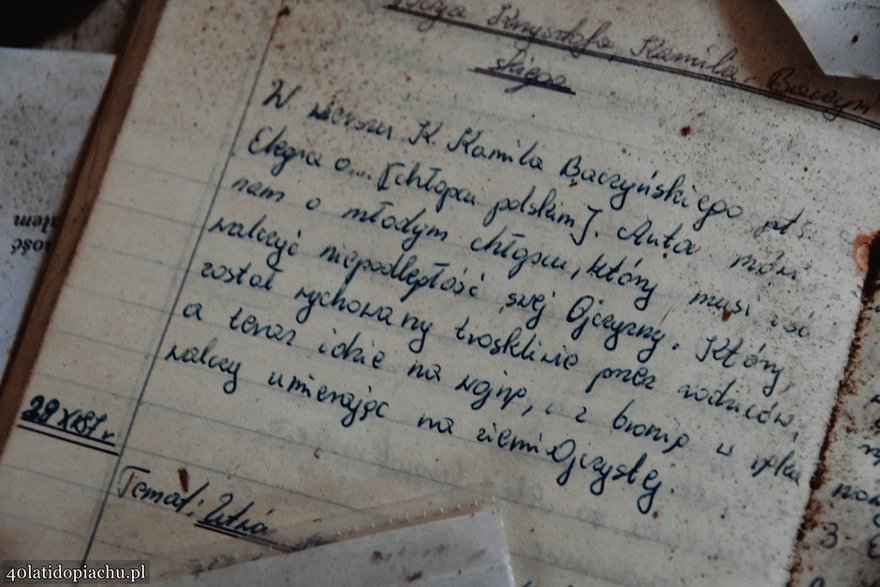 Krzysztofa Kamila Baczyń
skiego
W wierszu K. Kamila Baczyńskiego pt.
Elegia o... [chłopcu polskim]. Autor mówi
nam o młodym chłopcu, który musi iść
walczyć niepodległość swej Ojczyzny. Który,
został wychowany troskliwie przez rodziców,
a teraz idzie na wojnę, i z bronią w ręku
walczy umierając na ziemi Ojczystej.
29 XI 87 r.
Temat:
ność
3
40latidopiachu.pl